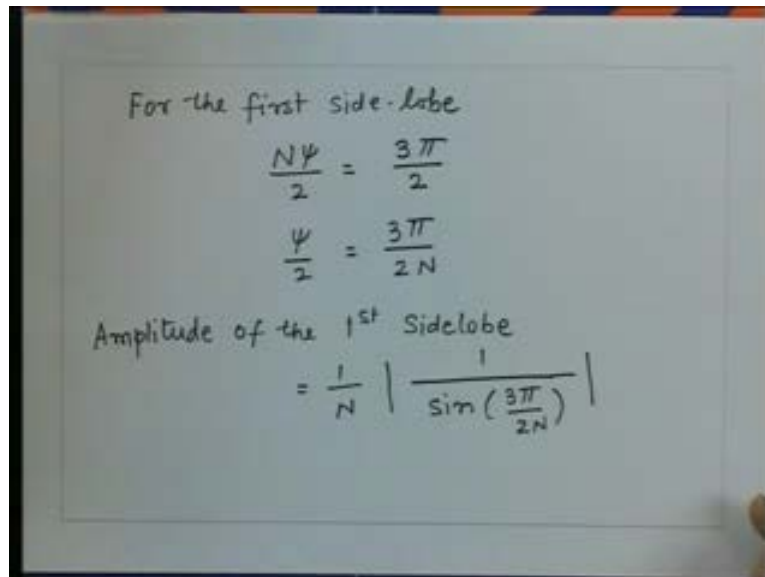 For the first side-lobe
Nψ/2 = 3π/2
ψ/2 = 3π/2N
Amplitude of the 1st Sidelobe
= 1/N | 1/sin(3π/2N) |